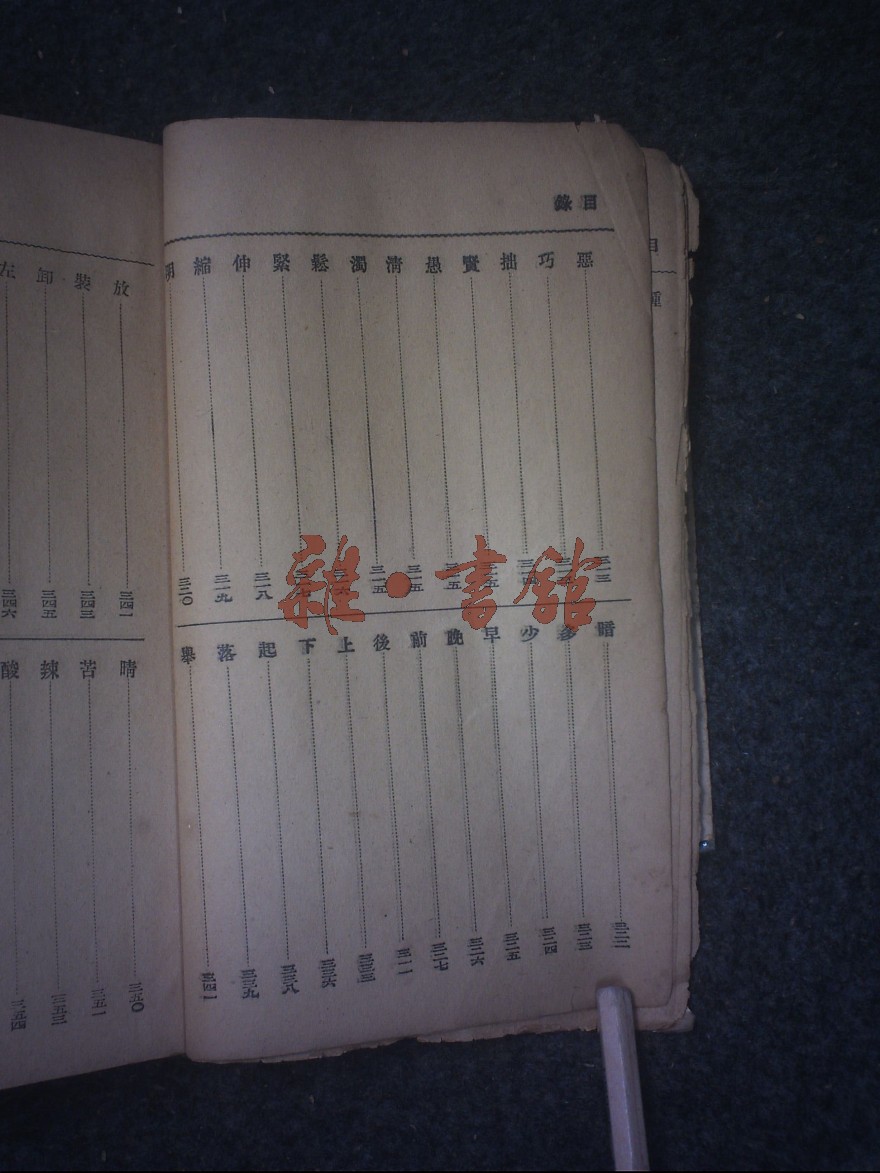 目錄
惡
巧
拙
賢
愚
清
濁
鬆
緊 三一七
伸 三一八
縮 三一九
明 三二〇
暗
多
少 三二四
早 三二五
晚 三二六
前 三二七
後
上
下 三三六
起 三三八
落 三三九
舉 三四一
放 三四一
裝 三四三
卸 三四五
左 三四六
晴 三五〇
苦 三五一
辣 三五三
酸 三五四
目
雜·書館